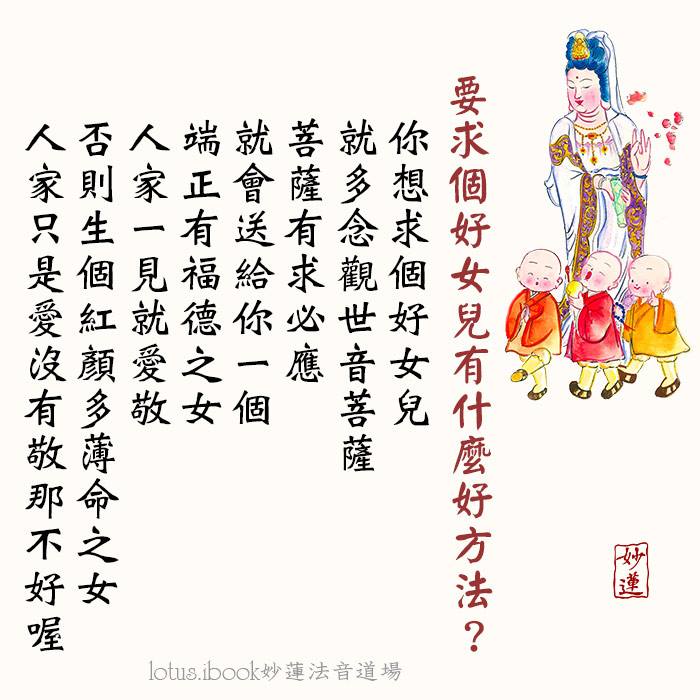 要求個好女兒有什麼好方法？
你想求個好女兒
就多念觀世音菩薩
菩薩有求必應
就會送給你一個
端正有福德之女
人家一見就愛敬
否則生個紅顏多薄命之女
人家只是愛沒有敬那不好喔
妙蓮
lotus.ibook妙蓮法音道場